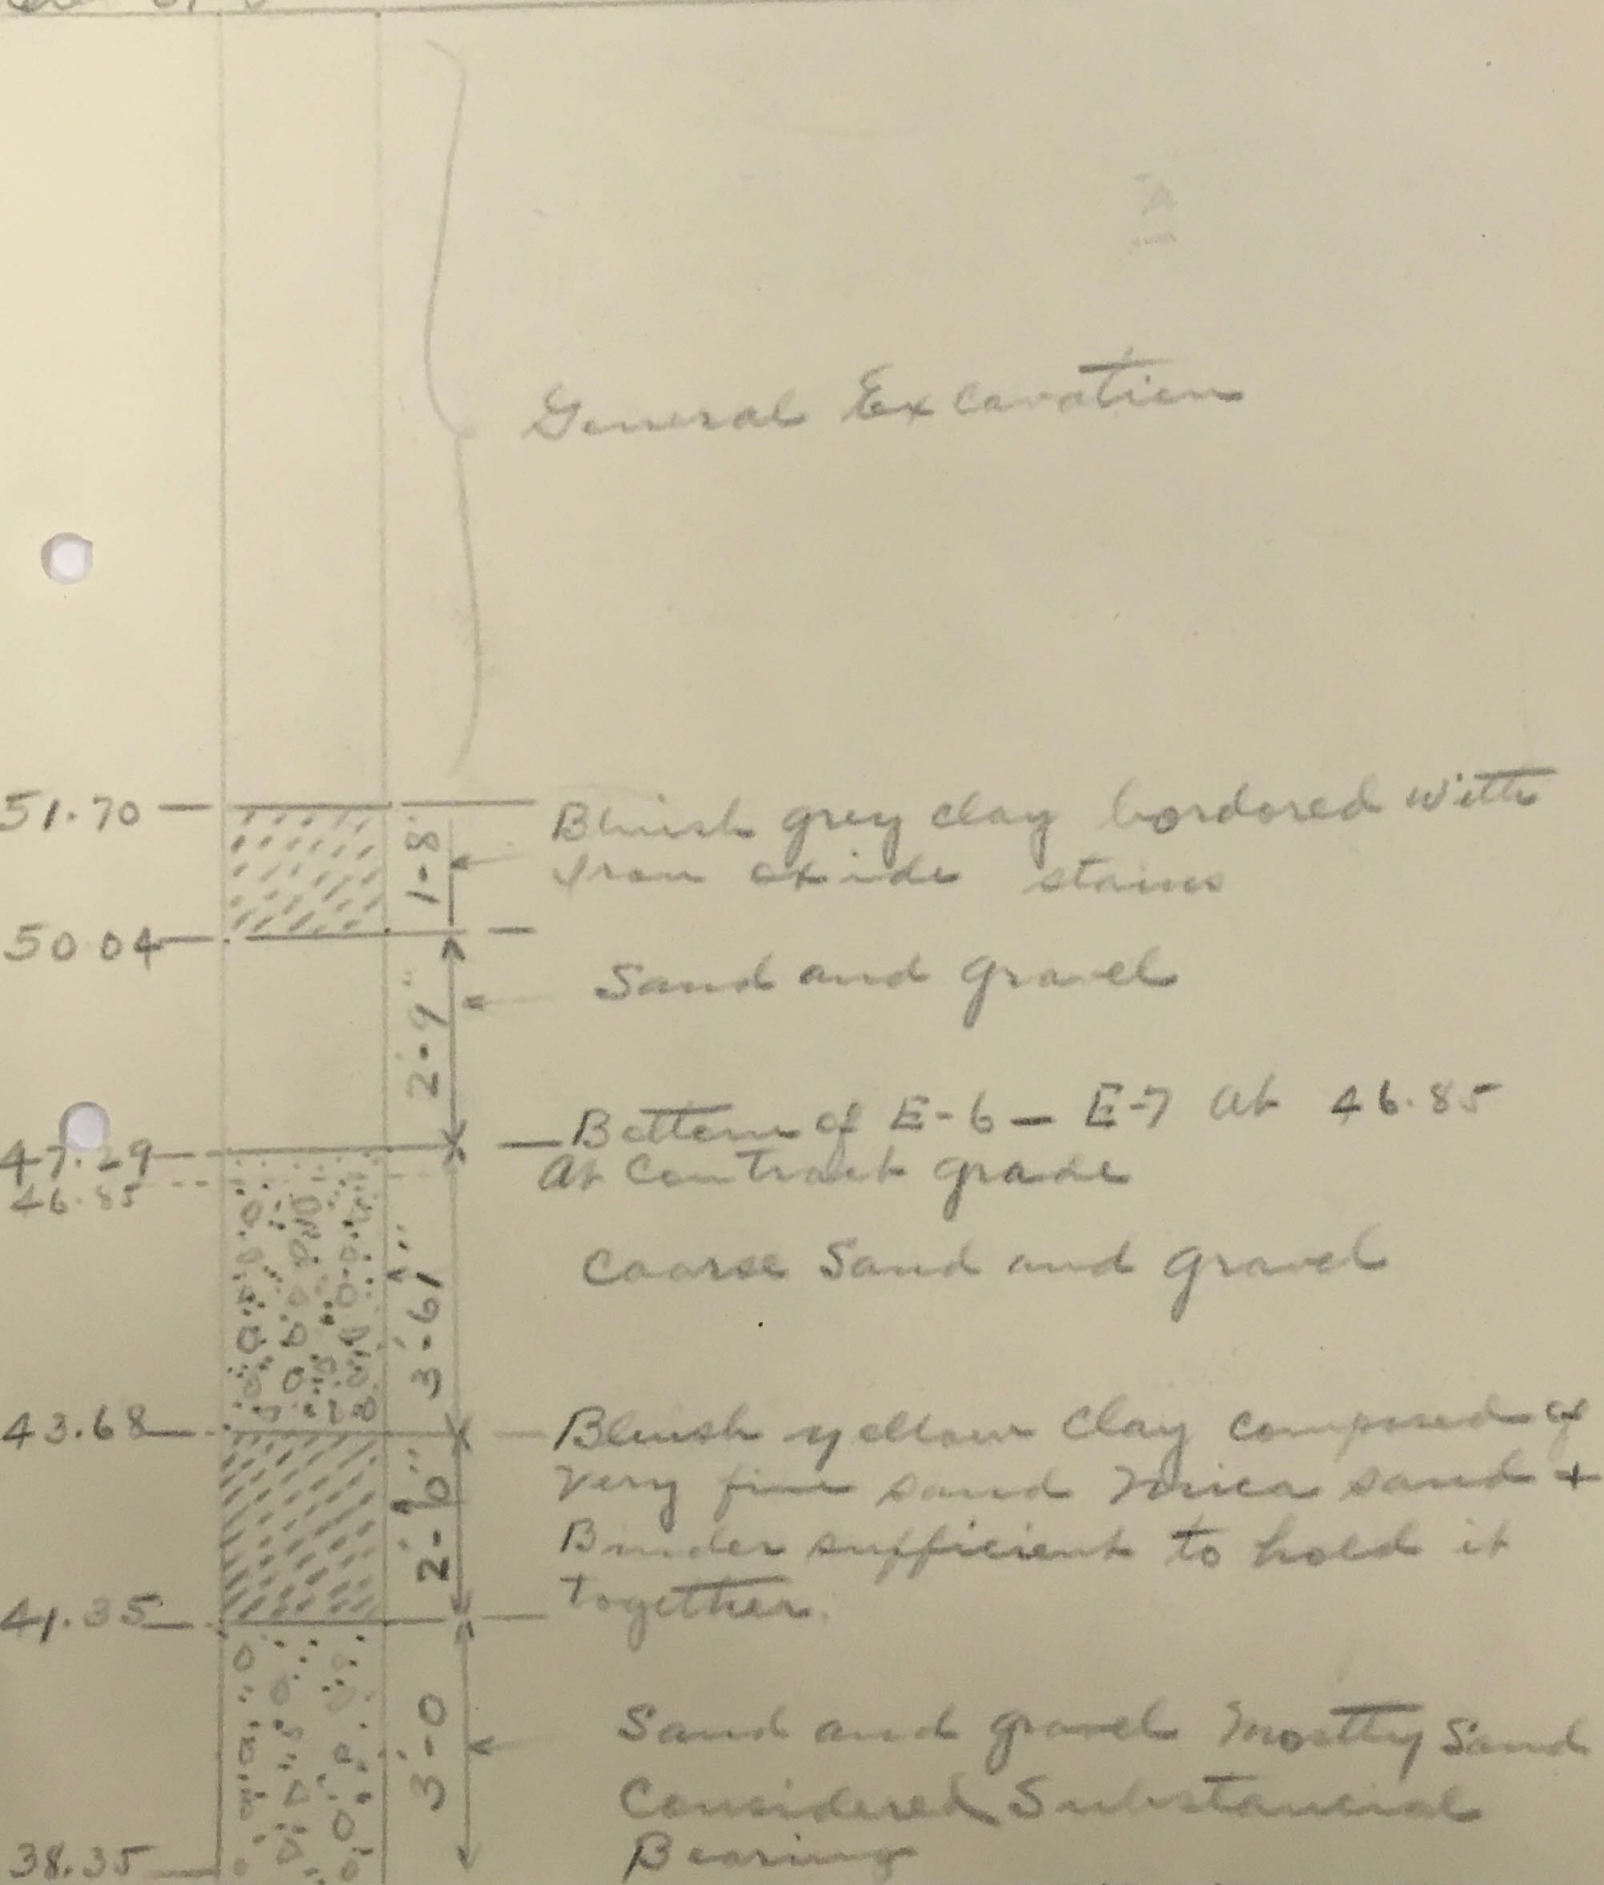 General Excavation
51.70
1-8"
Bluish grey clay bordored with
Iron oxide stains
50.04
Sand and gravel
2'-9"
Bottom of E-6 — E-7 at 46.85
47.29
At Contract grade
46.85
Coarse Sand and gravel
3'-6
43.68
Bluish yellow Clay composed of
Very fine sand Mica sand +
2'-6"
Binder sufficient to hold it
together.
41.35
Sand and gravel Mostly Sand
3'-0
Considered Substancial
Bearing
38.35